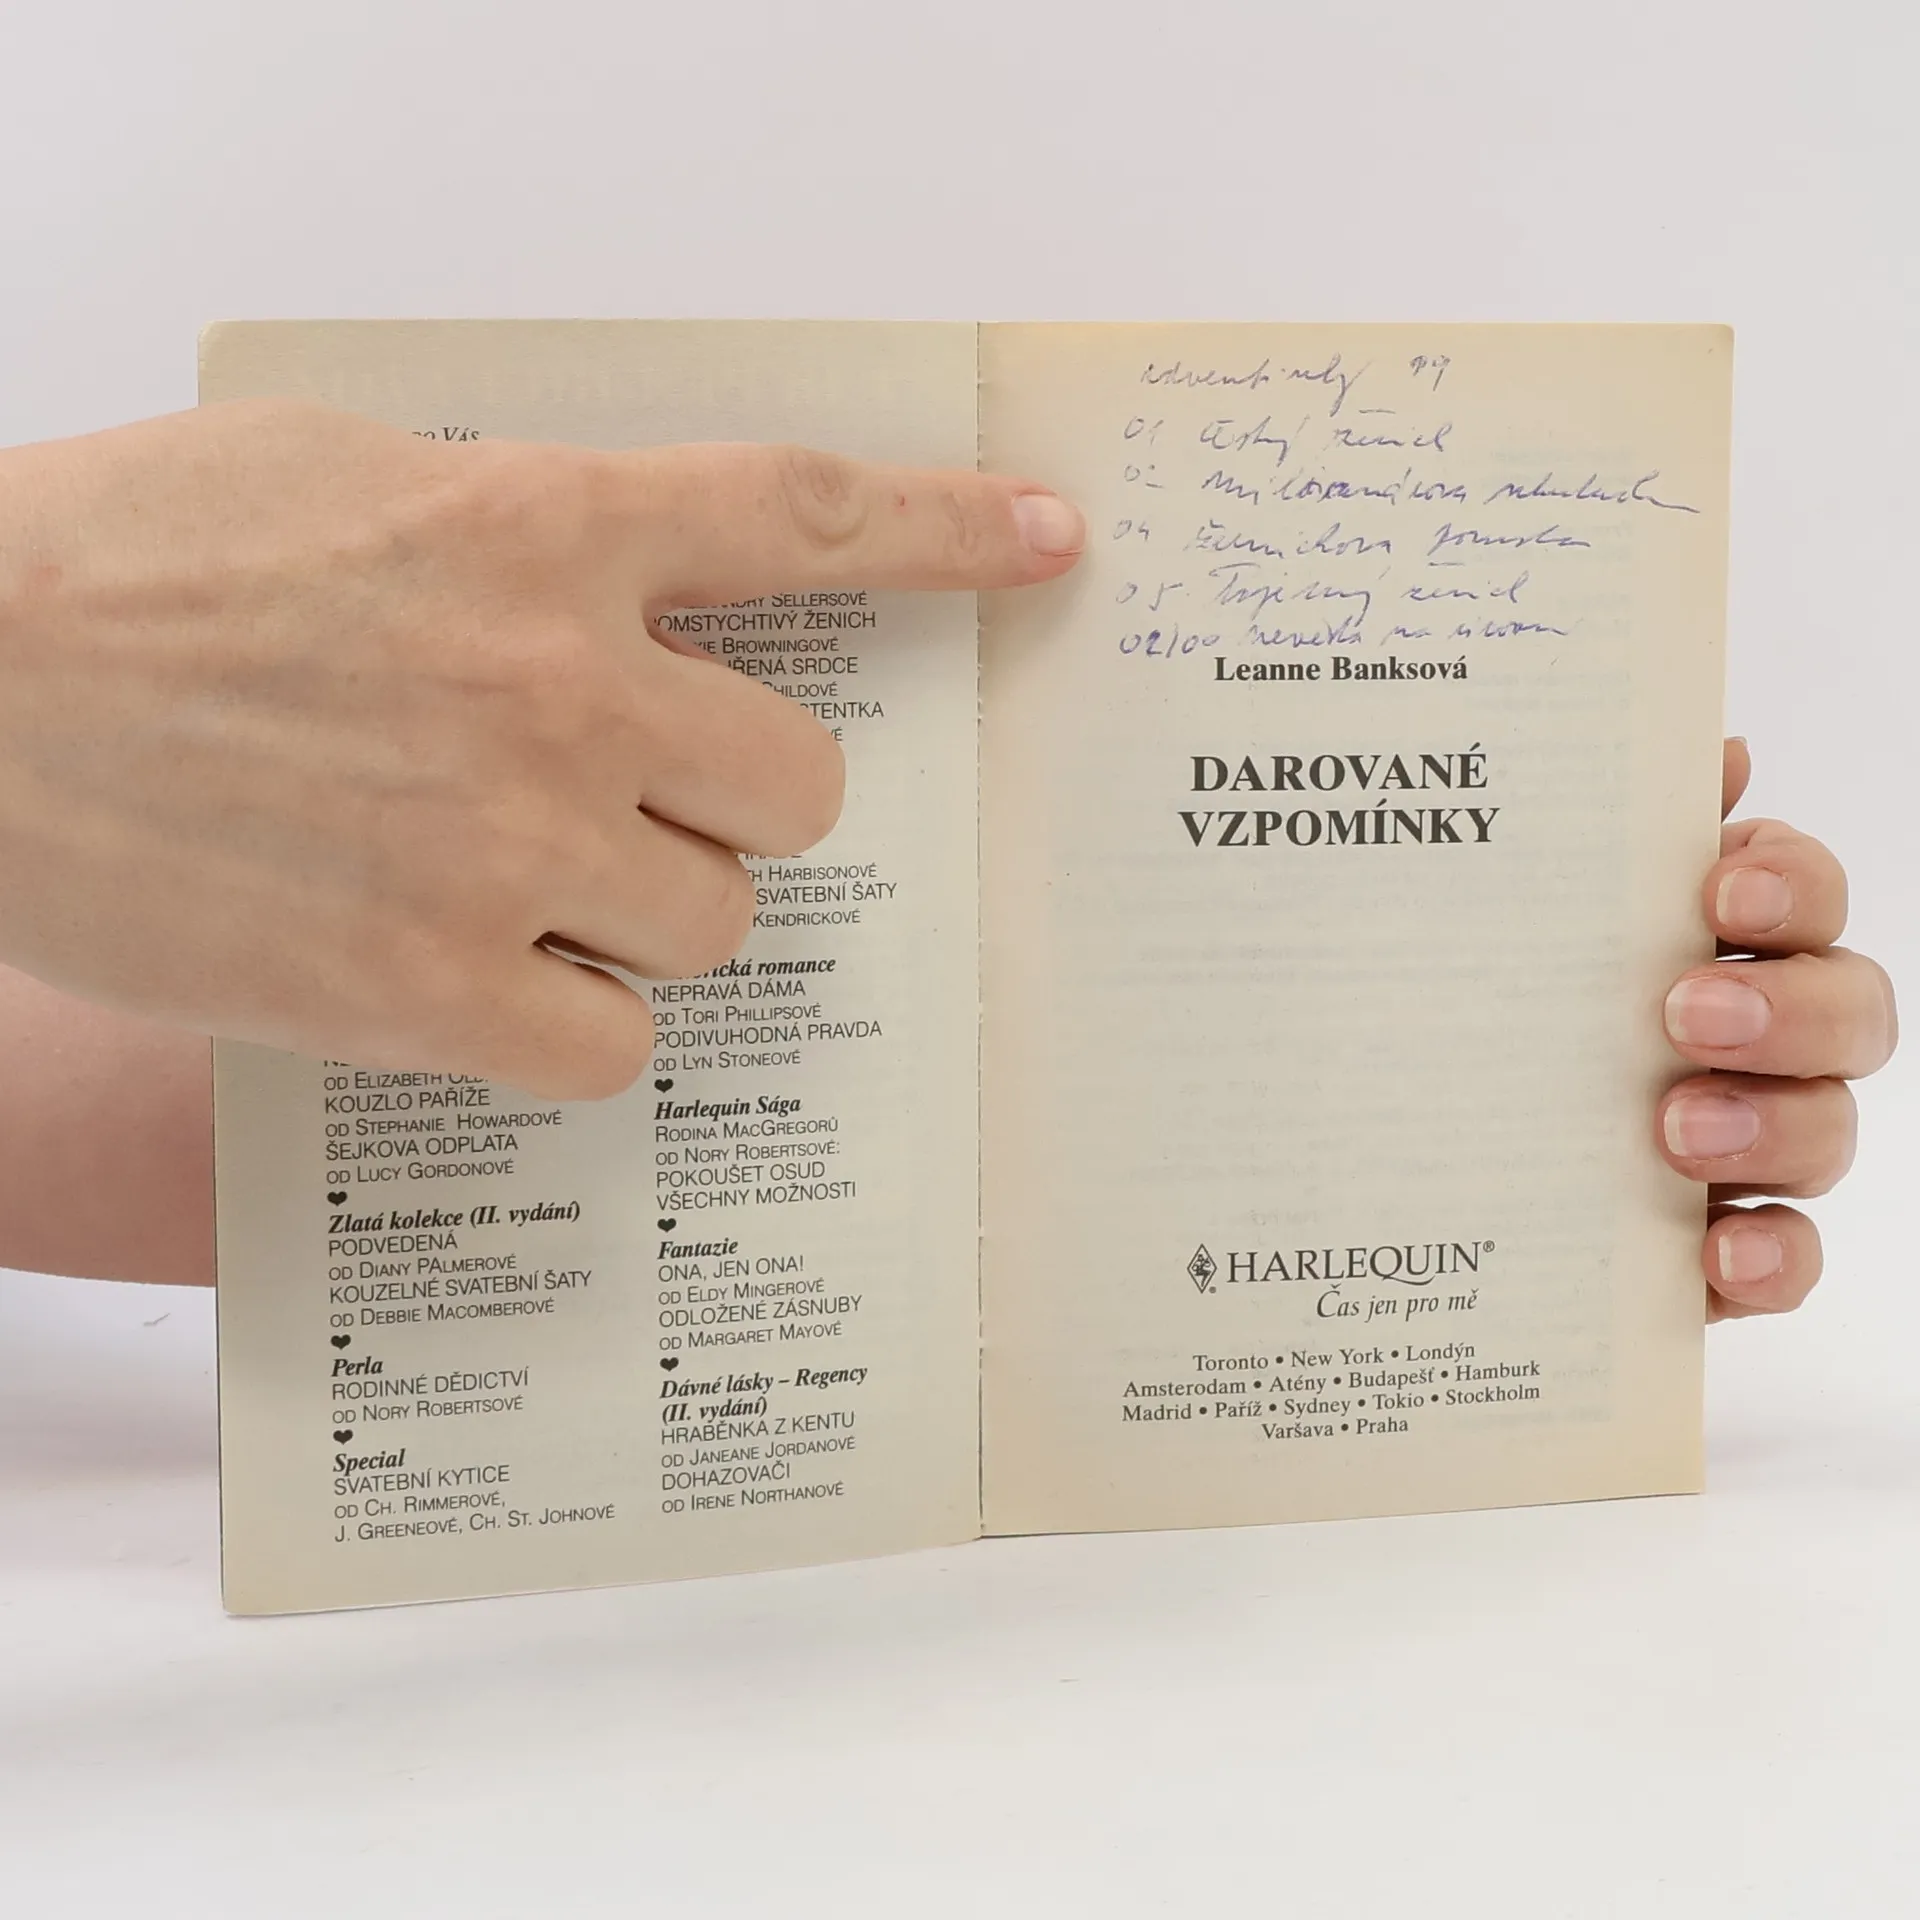 SELLERSOVÉ
POMSTYCHTIVÝ ŽENICH
BROWNINGOVÉ
SRDCE
SVATEBNÍ ŠATY
KENDRICKOVÉ
romance
NEPRAVÁ DÁMA
OD TORI PHILLIPSOVÉ
PODIVUHODNÁ PRAVDA
OD LYN STONEOVÉ
Harlequin Sága
RODINA MACGREGORŮ
OD NORY ROBERTSOVÉ:
POKOUŠET OSUD
VŠECHNY MOŽNOSTI
Fantazie
ONA, JEN ONA!
OD ELDY MINGEROVÉ
ODLOŽENÉ ZÁSNUBY
OD MARGARET MAYOVÉ
Dávné lásky – Regency
(II. vydání)
HRABĚNKA Z KENTU
OD JANEANE JORDANOVÉ
DOHAZOVAČI
OD IRENE NORTHANOVÉ
OD ELIZABETH
KOUZLO PAŘÍŽE
OD STEPHANIE HOWARDOVÉ
ŠEJKOVA ODPLATA
OD LUCY GORDONOVÉ
Zlatá kolekce (II. vydání)
PODVEDENÁ
OD DIANY PALMEROVÉ
KOUZELNÉ SVATEBNÍ ŠATY
OD DEBBIE MACOMBEROVÉ
Perla
RODINNÉ DĚDICTVÍ
OD NORY ROBERTSOVÉ
Special
SVATEBNÍ KYTICE
OD CH. RIMMEROVÉ,
J. GREENEOVÉ, CH. ST. JOHNOVÉ
04 Ženichova
05. Tajemný ženich
02/00 nevěsta na
Leanne Banksová
DAROVANÉ
VZPOMÍNKY
HARLEQUIN®
Čas jen pro mě
Toronto • New York • Londýn
Amsterodam • Atény • Budapešť • Hamburk
Madrid • Paříž • Sydney • Tokio • Stockholm
Varšava • Praha